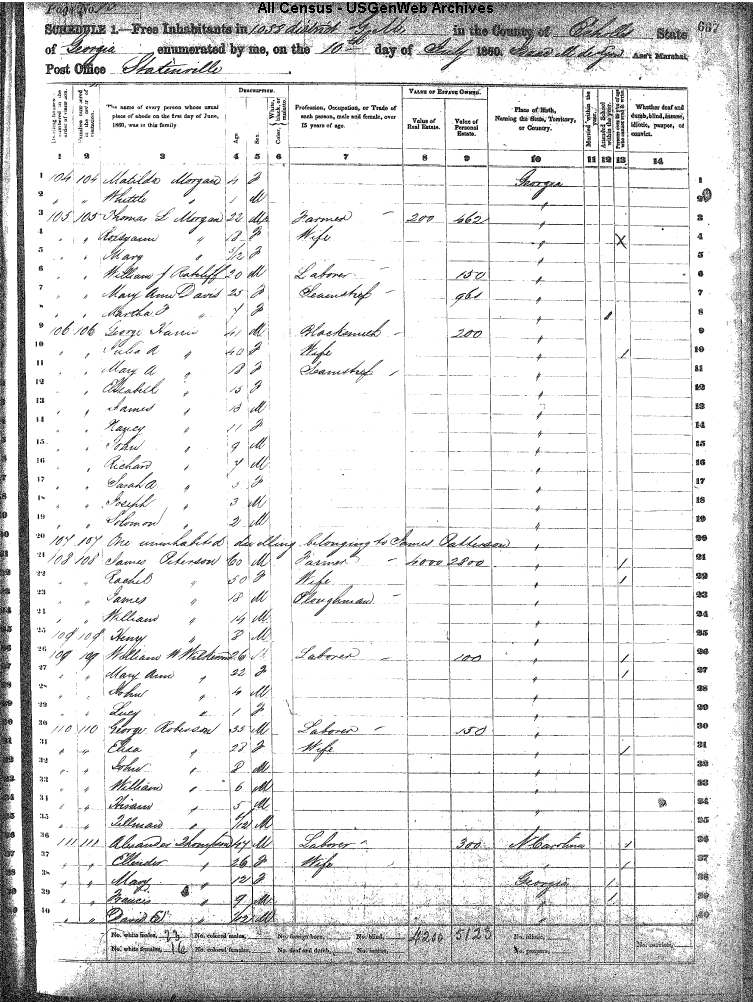 All Census - USGenWeb Archives
Page No.
SCHEDULE 1.—Free Inhabitants in 1058 district G.M. in the County of Echolls State 667
of Georgia enumerated by me, on the 10th day of July 1860. Ass't Marshal.
Post Office Statenville
Dwelling-houses numbered in the order of visitation.
Families numbered in the order of visitation.
The name of every person whose usual place of abode on the first day of June, 1860, was in this family.
DESCRIPTION.
Age.
Sex.
Color, White, black, or mulatto.
Profession, Occupation, or Trade of each person, male and female, over 15 years of age.
VALUE OF ESTATE OWNED.
Value of Real Estate.
Value of Personal Estate.
Place of Birth, Naming the State, Territory, or Country.
Married within the year.
Attended School within the year.
Whether deaf and dumb, blind, insane, idiotic, pauper, or convict.
1 2 3 4 5 6 7 8 9 10 11 12 13 14
1 104 104 Matilda Morgan 4 F Georgia 1
2 " " Whittle " 1 M " 2
3 105 105 Thomas L Morgan 22 M Farmer 200 462 " 3
4 " " Rosyann " 18 F Wife " X 4
5 " " Mary " /12 F " 5
6 " " William J Ratcliff 20 M Laborer 150 " 6
7 " " Mary Ann Davis 25 F Seamstress 961 " 7
8 " " Martha F " 7 F " 1 8
9 106 106 George 41 M Blacksmith 200 " 9
10 " " Julia A " 40 F Wife " 1 10
11 " " Mary A " 18 F Seamstress " 11
12 " " Elisabeth " 15 F " 12
13 " " James " 13 M " 13
14 " " Nancy " 11 F " 14
15 " " John " 9 M " 15
16 " " Richard " 7 M " 16
17 " " Sarah A " 5 F " 17
18 " " Joseph " 3 M " 18
19 " " Solomon " 2 M " 19
20 107 107 One uninhabited dwelling belonging to James Patterson 20
21 108 108 James Peterson 60 M Farmer 4000 2800 " 1 21
22 " " Rachel " 50 F Wife " 1 22
23 " " James " 18 M Ploughman " 23
24 " " William " 14 M " 24
25 Henry " 8 M " 25
26 109 109 William W 26 M Laborer 100 " 1 26
27 " " Mary Ann " 22 F " 1 27
28 " " John " 4 M " 28
29 " " Lucy " 1 F " 29
30 110 110 George Roberson 35 M Laborer 150 " 30
31 " " Elisa " 28 F Wife " 1 31
32 " " John " 8 M " 32
33 " " William " 6 M " 33
34 " " Hiram " 5 M " 34
35 " " Tillman " /12 M " 35
36 111 111 Alexander Thompson 47 M Laborer 300 N Carolina 1 36
37 " " Ellender " 26 F Wife " 1 37
38 " " Mary " 12 F Georgia 1 38
39 " " Francis " 9 M " 1 39
40 " " David " /12 M " 40
No. white males, 23 No. colored males, No. foreign born, No. blind, 4200 5123 No. idiotic, No. convicts,
No. white females, 16 No. colored females, No. deaf and dumb, No. insane, No. paupers,